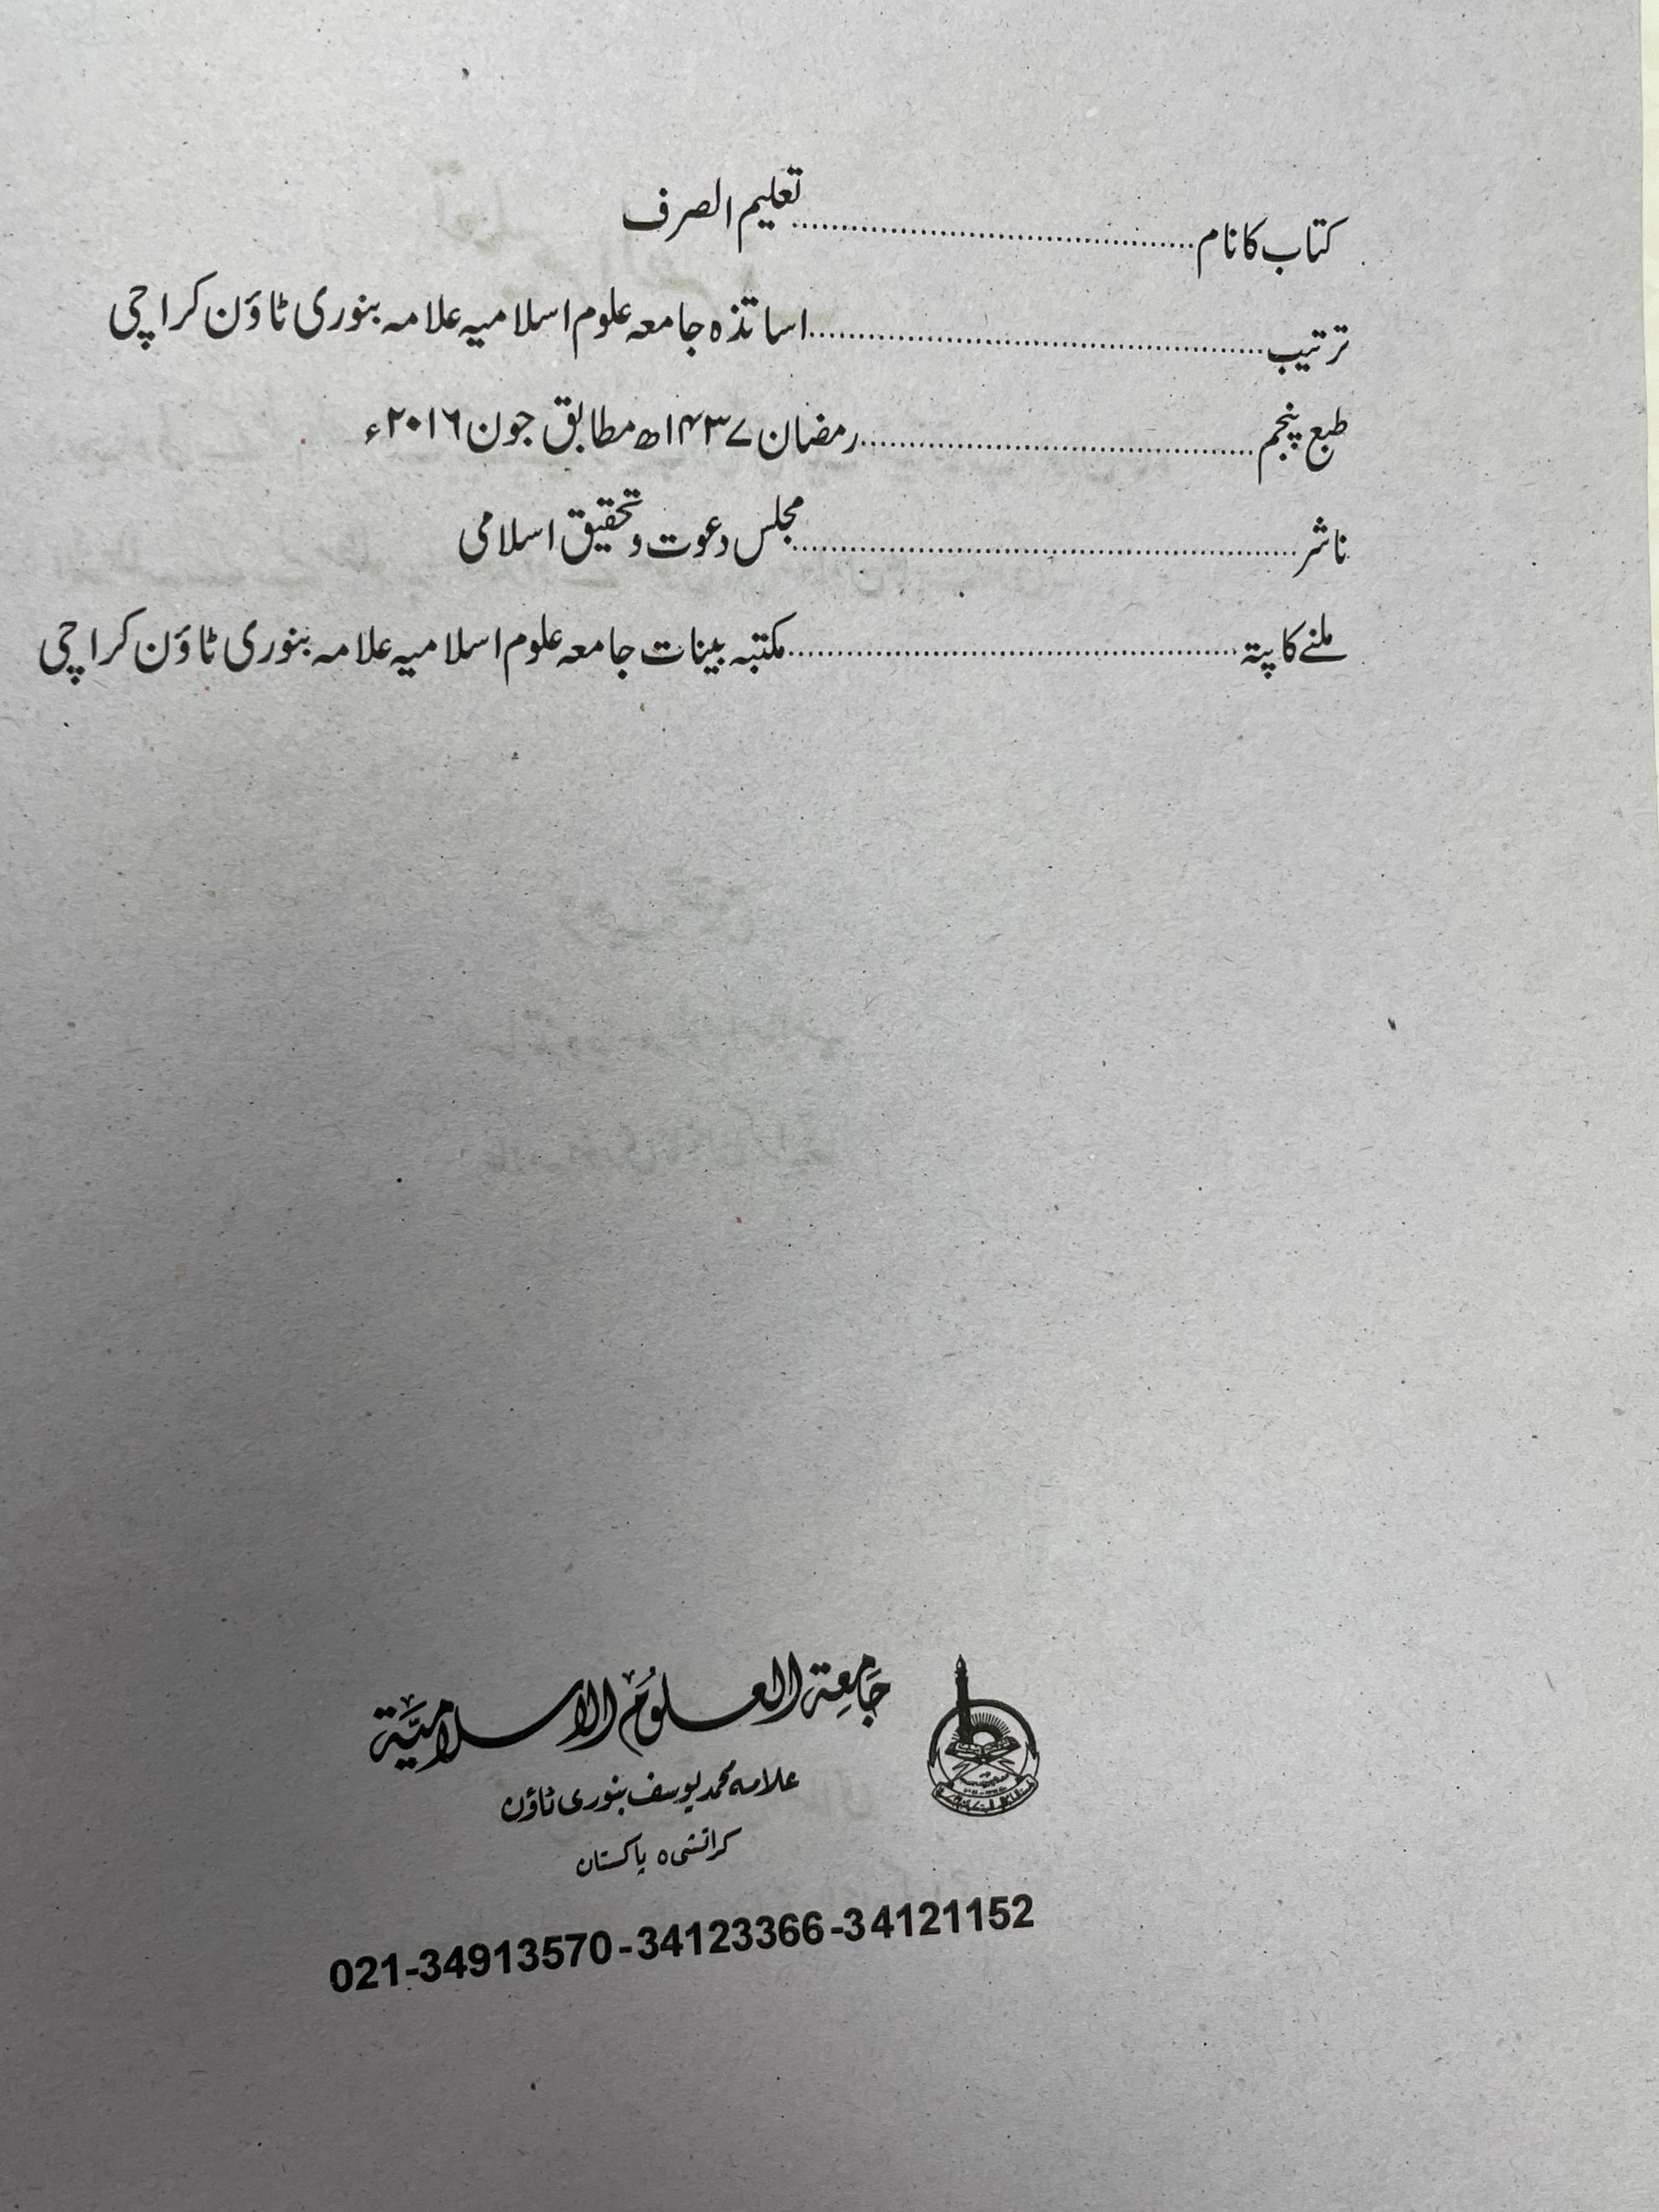 کتاب کا نام........................................تعلیم الصرف
ترتیب........................................اساتذہ جامعہ علوم اسلامیہ علامہ بنوری ٹاؤن کراچی
طبع پنجم........................................رمضان ۱۴۳۷ھ مطابق جون ۲۰۱۶ء
ناشر........................................مجلس دعوت و تحقیق اسلامی
ملنے کا پتہ........................................مکتبہ بینات جامعہ علوم اسلامیہ علامہ بنوری ٹاؤن کراچی
جَامِعَة العلوُم الاسلاميَّة
علامہ محمد یوسف بنوری ٹاؤن
کراتشی ۵ پاکستان
021-34913570-34123366-34121152